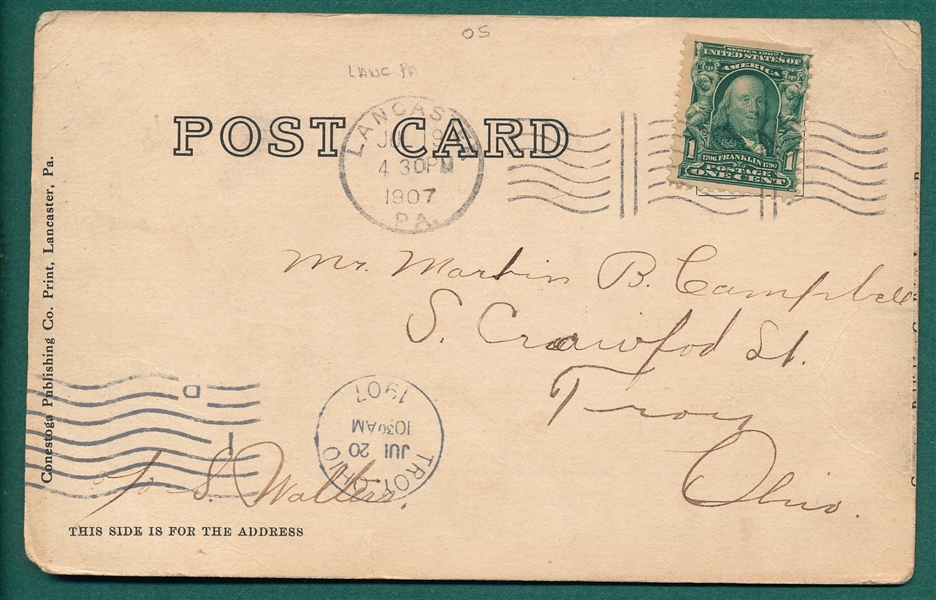 OS
LANC PA
POST CARD
LANCAST
4 30PM
1907
PA.
SERIES 1902
UNITED STATES OF
AMERICA
1 1706 FRANKLIN 1790 1
POSTAGE
ONE CENT
Mr. Martin B. Campbell
S. Crawfod St.
Troy
Ohio.
Conestoga Publishing Co. Print, Lancaster, Pa.
D
1
TROY, OHIO
JUL 20
1030AM
1907
c/o S. Walters.
THIS SIDE IS FOR THE ADDRESS